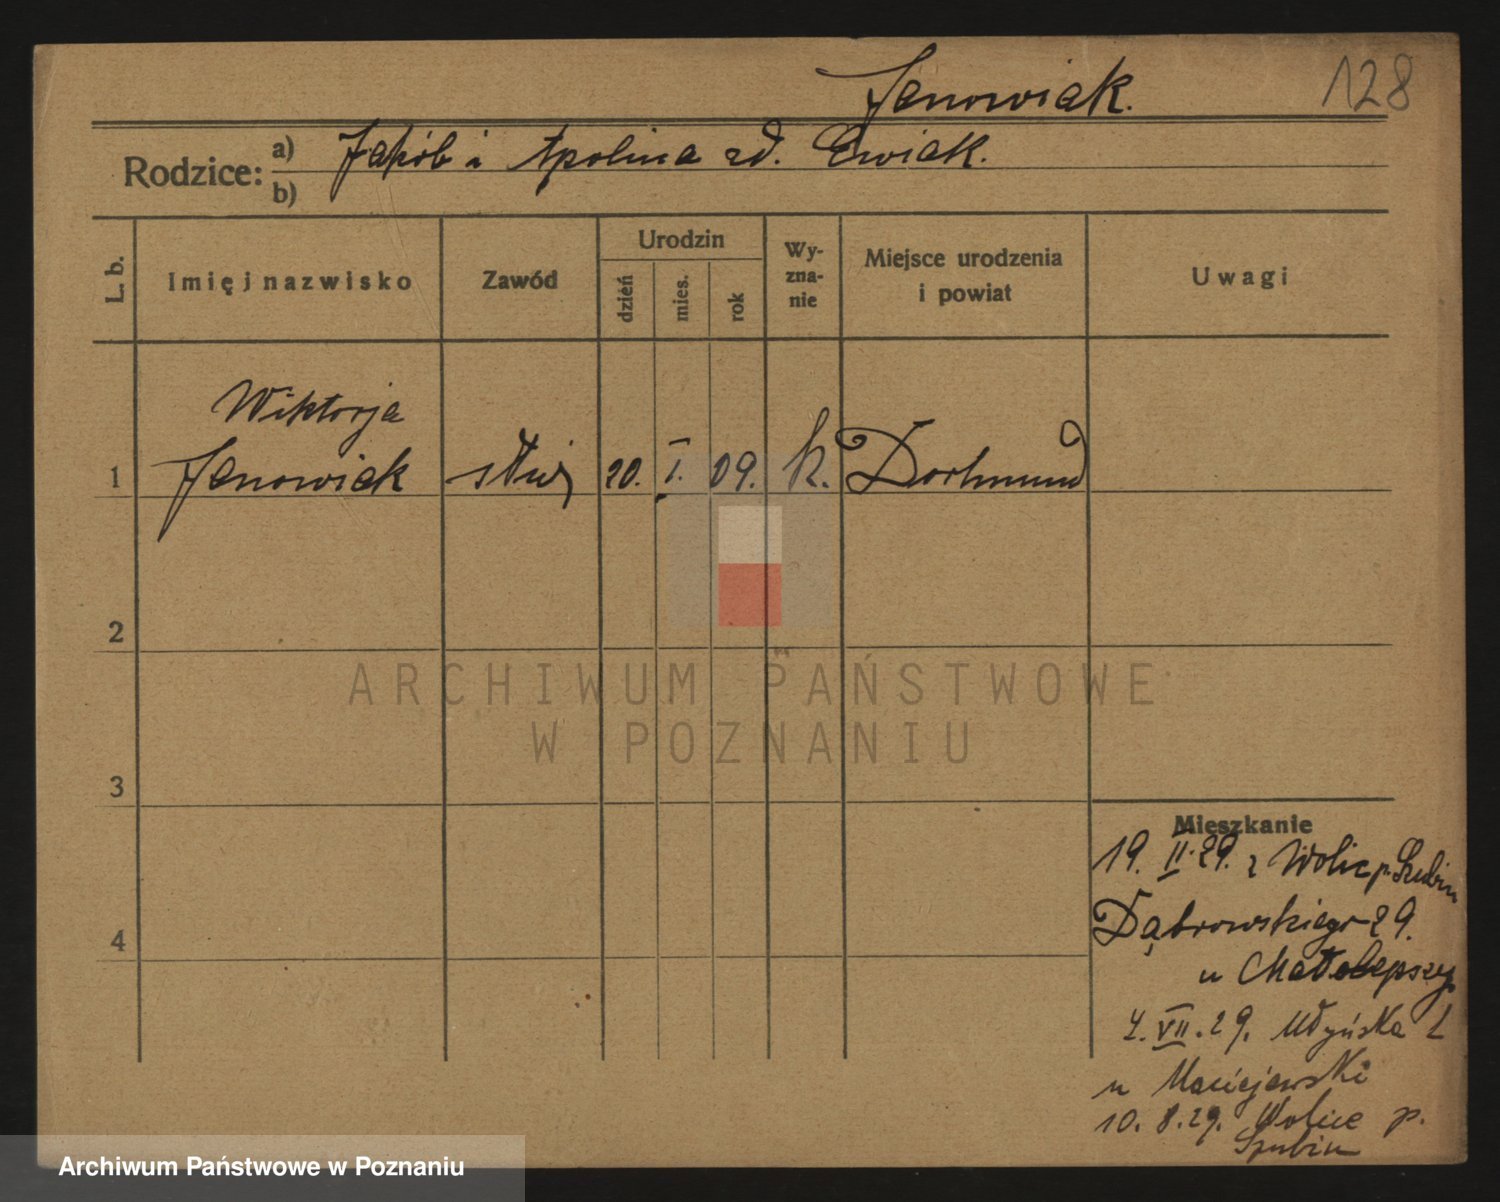 Janowiak.
128
Rodzice:
a) Jakób i Apolina zd. Ćwiak.
b)
L. b.
Imię i nazwisko
Zawód
Urodzin
dzień
mies.
rok
Wy-
zna-
nie
Miejsce urodzenia
i powiat
Uwagi
Wiktorja
1 Janowiak służ 20. I. 09. k. Dortmund
2
3
4
Mieszkanie
19. II. 29. z Wolic p. Szubin
Dąbrowskiego 29.
u Małolepszej
4. VII. 29. Młyńska
u Maciejewski
10. 8. 29. Wolice p.
Szubin
ARCHIWUM PAŃSTWOWE
W POZNANIU
Archiwum Państwowe w Poznaniu